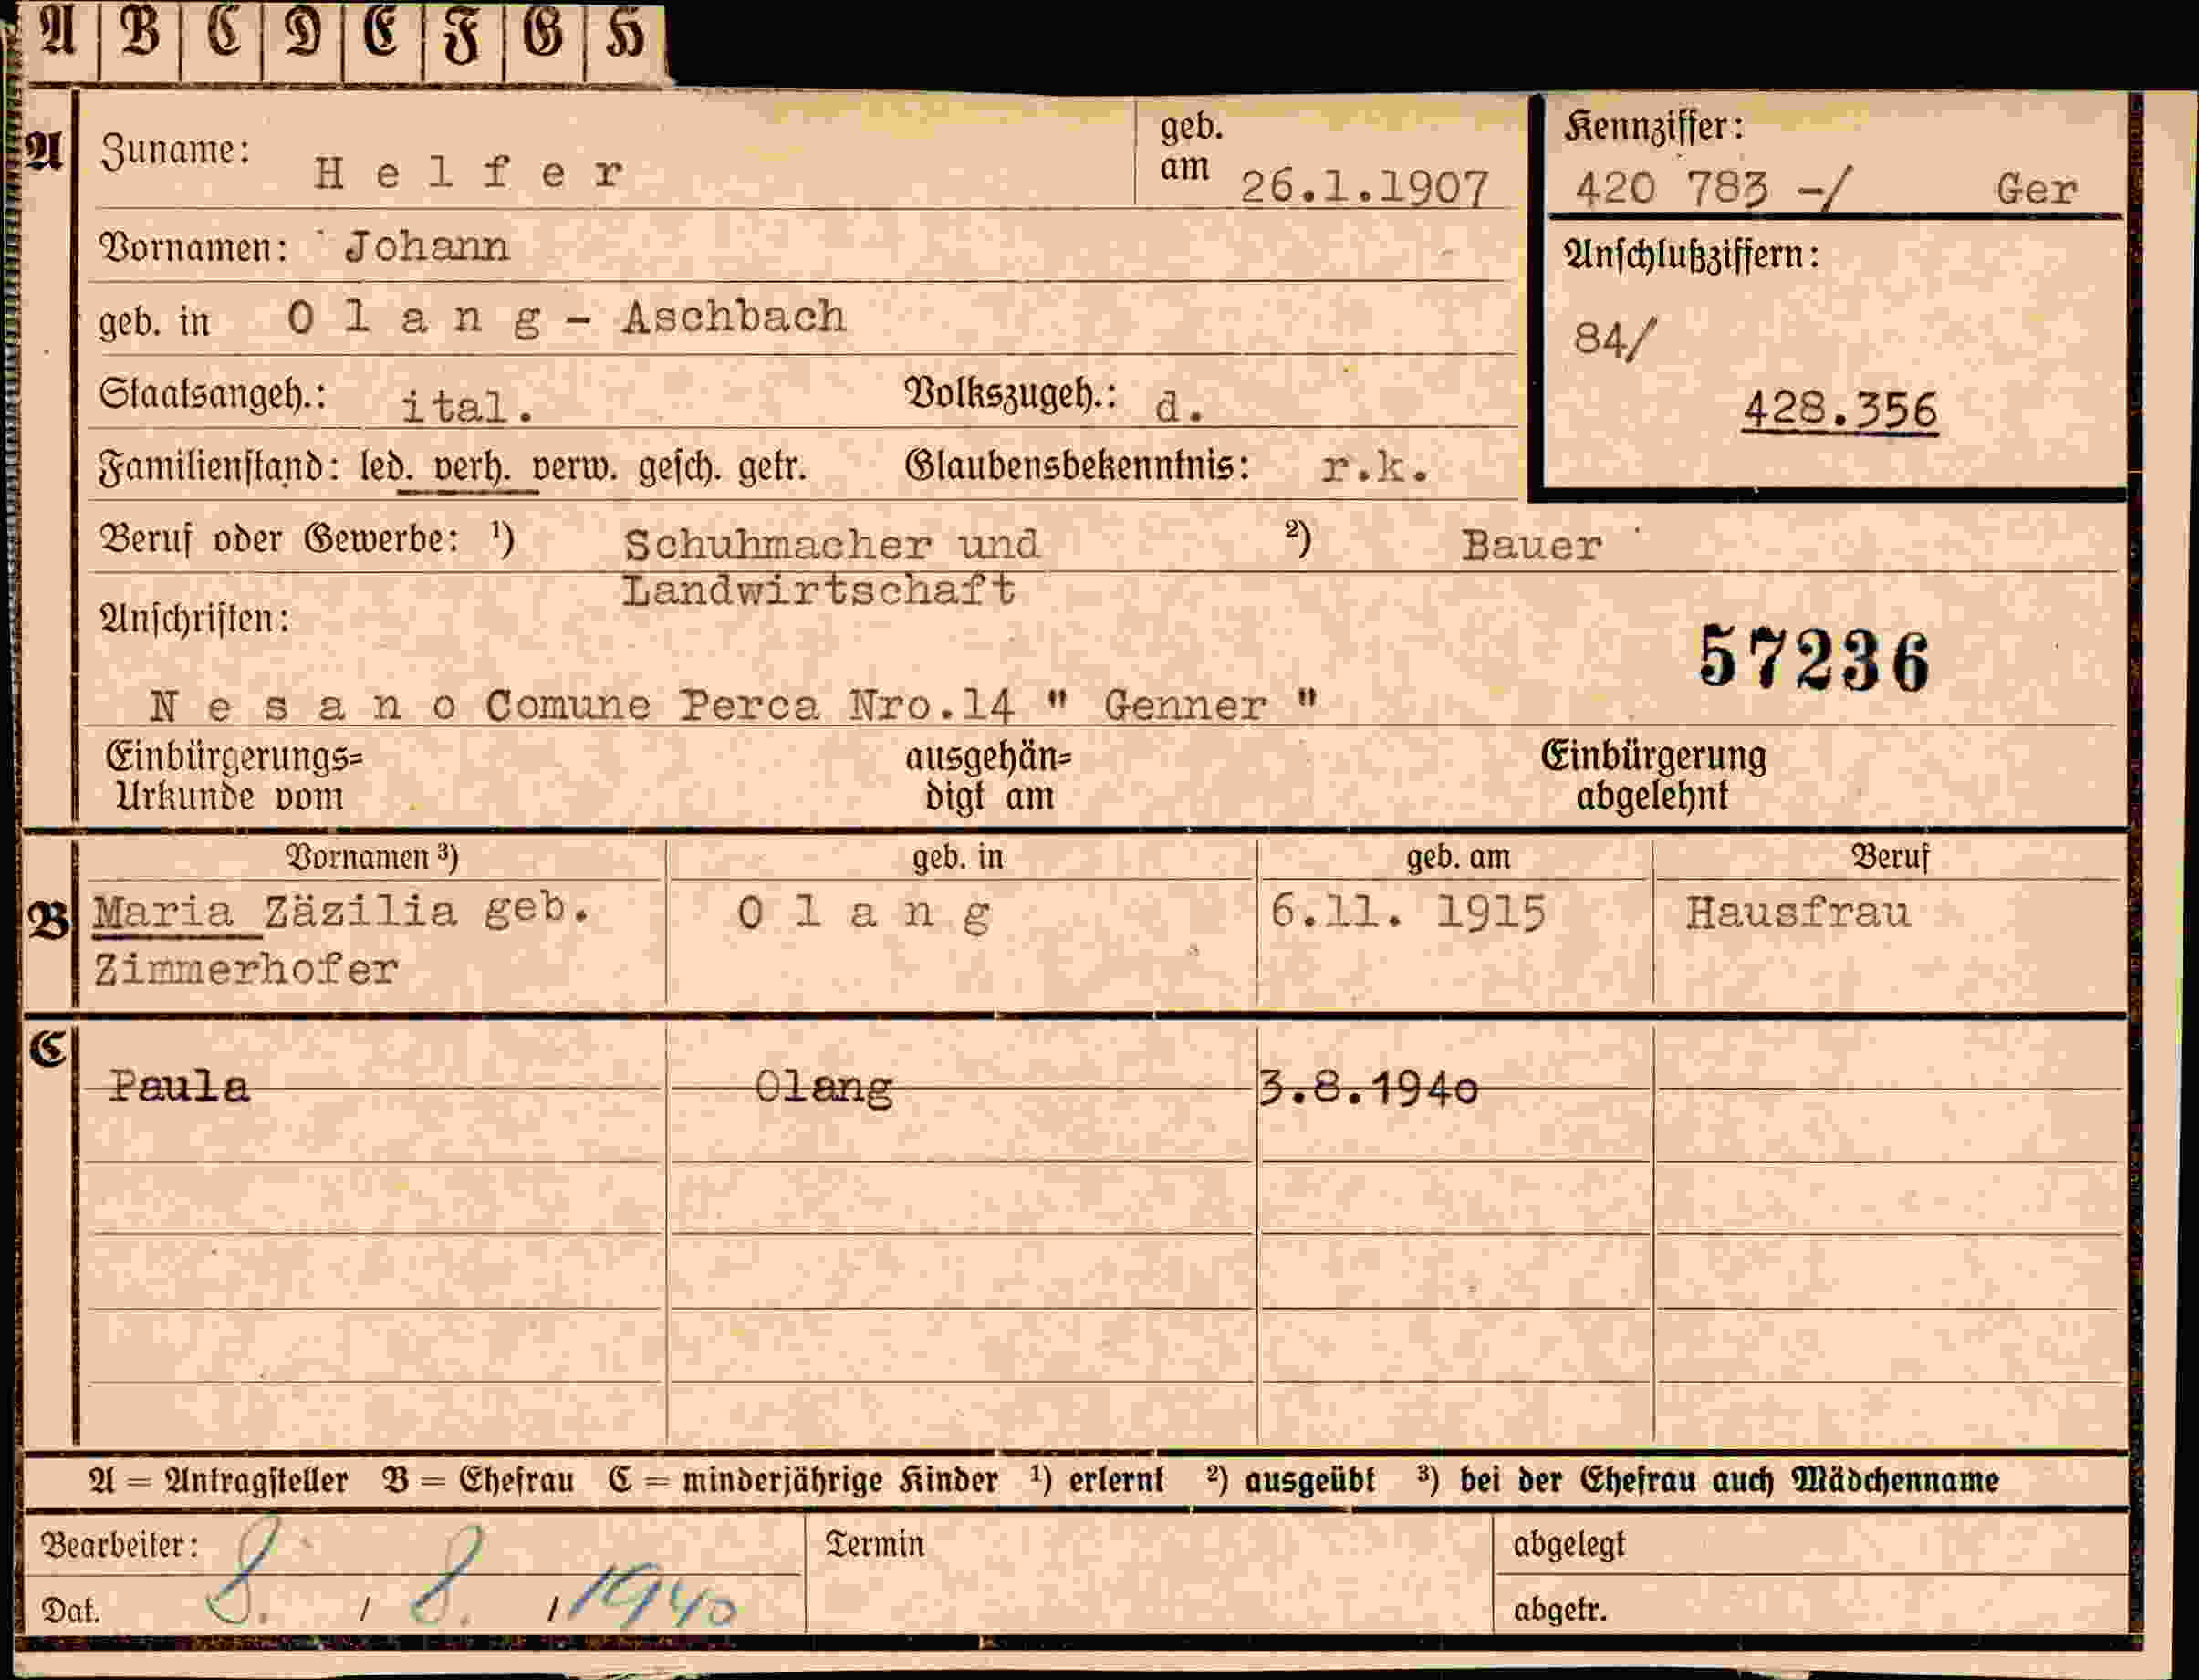 A B C D E F G H
A
Zuname: Helfer
geb. am 26.1.1907
Kennziffer:
420 783 -/ Ger
Vornamen: Johann
Anschlußziffern:
geb. in Olang - Aschbach
84/
Staatsangeh.: ital. Volkszugeh.: d.
428.356
Familienstand: led. verh. verw. gesch. getr. Glaubensbekenntnis: r.k.
Beruf oder Gewerbe: ¹) Schuhmacher und ²) Bauer
Landwirtschaft
Anschriften:
57236
Nesano Comune Perca Nro.14 " Genner "
Einbürgerungs= ausgehän= Einbürgerung
Urkunde vom digt am abgelehnt
Vornamen ³) geb. in geb. am Beruf
B Maria Zäzilia geb. Olang 6.11. 1915 Hausfrau
Zimmerhofer
C
Paula Olang 3.8.1940
A = Antragsteller B = Ehefrau C = minderjährige Kinder ¹) erlernt ²) ausgeübt ³) bei der Ehefrau auch Mädchenname
Bearbeiter: Termin abgelegt
Dat. 8. / 8. / 1940 abgetr.